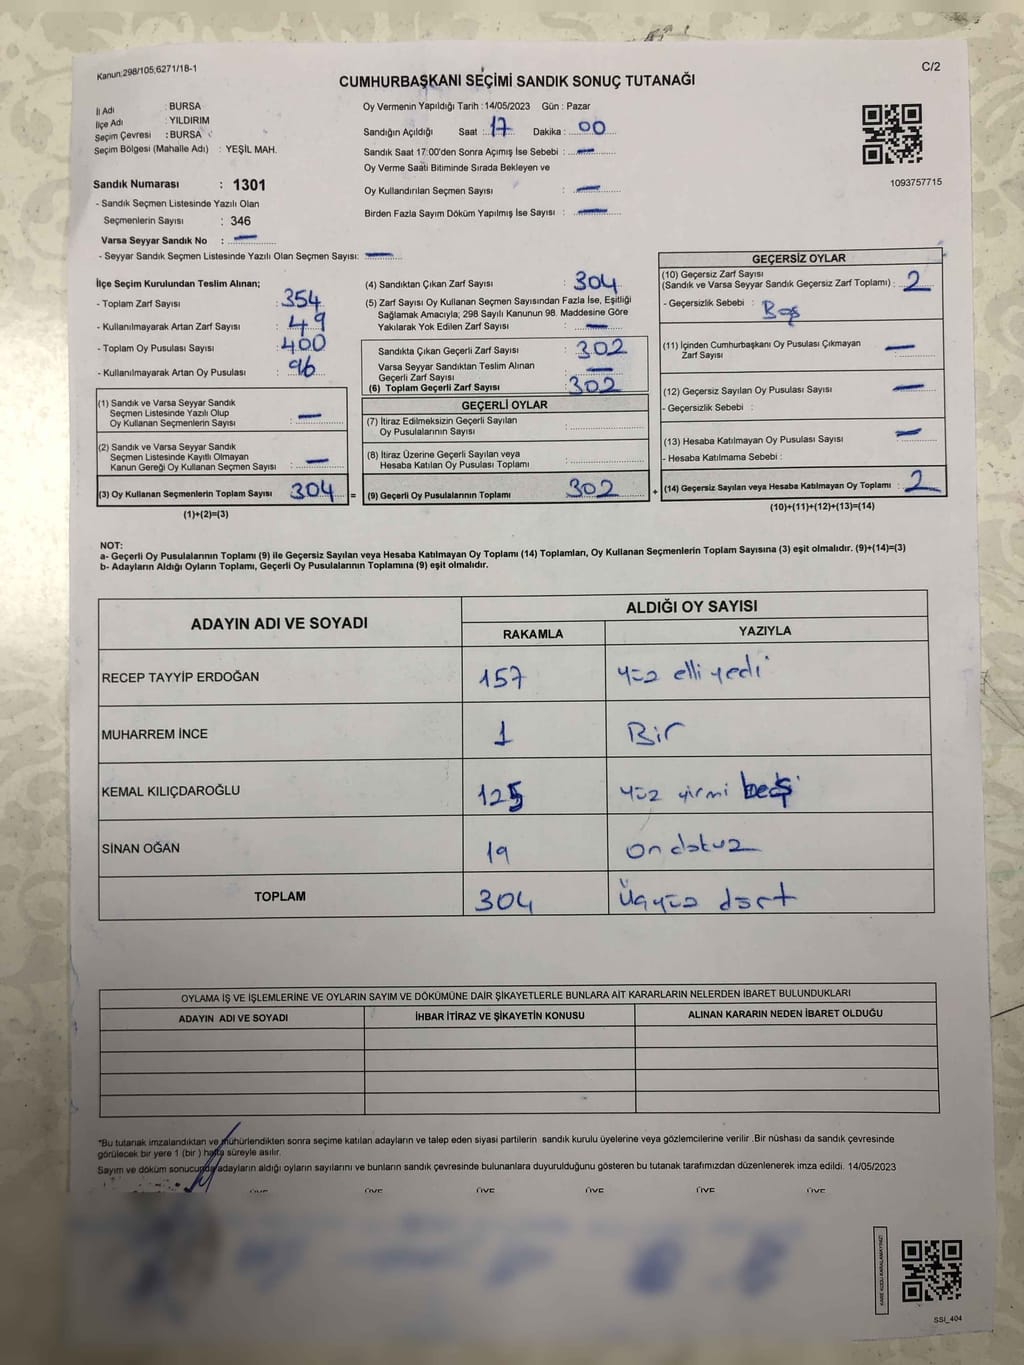 Kanun:298/105;6271/18-1
C/2
CUMHURBAŞKANI SEÇİMİ SANDIK SONUÇ TUTANAĞI
İl Adı : BURSA
İlçe Adı : YILDIRIM
Seçim Çevresi : BURSA
Seçim Bölgesi (Mahalle Adı) : YEŞİL MAH.
Oy Vermenin Yapıldığı Tarih : 14/05/2023 Gün : Pazar
Sandığın Açıldığı Saat : 17 Dakika : 00
Sandık Saat 17:00'den Sonra Açımış İse Sebebi : —
Oy Verme Saati Bitiminde Sırada Bekleyen ve
Oy Kullandırılan Seçmen Sayısı : —
Birden Fazla Sayım Döküm Yapılmış İse Sayısı : —
1093757715
Sandık Numarası : 1301
- Sandık Seçmen Listesinde Yazılı Olan
Seçmenlerin Sayısı : 346
Varsa Seyyar Sandık No : —
- Seyyar Sandık Seçmen Listesinde Yazılı Olan Seçmen Sayısı: —
İlçe Seçim Kurulundan Teslim Alınan;
- Toplam Zarf Sayısı : 354
- Kullanılmayarak Artan Zarf Sayısı : 49
- Toplam Oy Pusulası Sayısı : 400
- Kullanılmayarak Artan Oy Pusulası : 96
(1) Sandık ve Varsa Seyyar Sandık
Seçmen Listesinde Yazılı Olup
Oy Kullanan Seçmenlerin Sayısı : —
(2) Sandık ve Varsa Seyyar Sandık
Seçmen Listesinde Kayıtlı Olmayan
Kanun Gereği Oy Kullanan Seçmen Sayısı : —
(3) Oy Kullanan Seçmenlerin Toplam Sayısı 304 =
(1)+(2)=(3)
(4) Sandıktan Çıkan Zarf Sayısı : 304
(5) Zarf Sayısı Oy Kullanan Seçmen Sayısından Fazla İse, Eşitliği
Sağlamak Amacıyla; 298 Sayılı Kanunun 98. Maddesine Göre
Yakılarak Yok Edilen Zarf Sayısı : —
Sandıkta Çıkan Geçerli Zarf Sayısı : 302
Varsa Seyyar Sandıktan Teslim Alınan
Geçerli Zarf Sayısı : —
(6) Toplam Geçerli Zarf Sayısı : 302
GEÇERLİ OYLAR
(7) İtiraz Edilmeksizin Geçerli Sayılan
Oy Pusulalarının Sayısı :
(8) İtiraz Üzerine Geçerli Sayılan veya
Hesaba Katılan Oy Pusulası Toplamı :
(9) Geçerli Oy Pusulalarının Toplamı 302 +
GEÇERSİZ OYLAR
(10) Geçersiz Zarf Sayısı
(Sandık ve Varsa Seyyar Sandık Geçersiz Zarf Toplamı) : 2
- Geçersizlik Sebebi : Boş
(11) İçinden Cumhurbaşkanı Oy Pusulası Çıkmayan
Zarf Sayısı : —
(12) Geçersiz Sayılan Oy Pusulası Sayısı : —
- Geçersizlik Sebebi :
(13) Hesaba Katılmayan Oy Pusulası Sayısı : —
- Hesaba Katılmama Sebebi :
(14) Geçersiz Sayılan veya Hesaba Katılmayan Oy Toplamı : 2
(10)+(11)+(12)+(13)=(14)
NOT:
a- Geçerli Oy Pusulalarının Toplamı (9) ile Geçersiz Sayılan veya Hesaba Katılmayan Oy Toplamı (14) Toplamları, Oy Kullanan Seçmenlerin Toplam Sayısına (3) eşit olmalıdır. (9)+(14)=(3)
b- Adayların Aldığı Oyların Toplamı, Geçerli Oy Pusulalarının Toplamına (9) eşit olmalıdır.
ADAYIN ADI VE SOYADI
ALDIĞI OY SAYISI
RAKAMLA YAZIYLA
RECEP TAYYİP ERDOĞAN 157 yüz elli yedi
MUHARREM İNCE 1 Bir
KEMAL KILIÇDAROĞLU 125 yüz yirmi beş
SİNAN OĞAN 19 on dokuz
TOPLAM 304 Üçyüz dört
OYLAMA İŞ VE İŞLEMLERİNE VE OYLARIN SAYIM VE DÖKÜMÜNE DAİR ŞİKAYETLERLE BUNLARA AİT KARARLARIN NELERDEN İBARET BULUNDUKLARI
ADAYIN ADI VE SOYADI İHBAR İTİRAZ VE ŞİKAYETİN KONUSU ALINAN KARARIN NEDEN İBARET OLDUĞU
*Bu tutanak imzalandıktan ve mühürlendikten sonra seçime katılan adayların ve talep eden siyasi partilerin sandık kurulu üyelerine veya gözlemcilerine verilir .Bir nüshası da sandık çevresinde
görülecek bir yere 1 (bir ) hafta süreyle asılır.
Sayım ve döküm sonucunda adayların aldığı oyların sayılarını ve bunların sandık çevresinde bulunanlara duyurulduğunu gösteren bu tutanak tarafımızdan düzenlenerek imza edildi. 14/05/2023
ÜYE ÜYE ÜYE ÜYE ÜYE ÜYE
KARE KODU KARALAMAYINIZ!
SSI_404